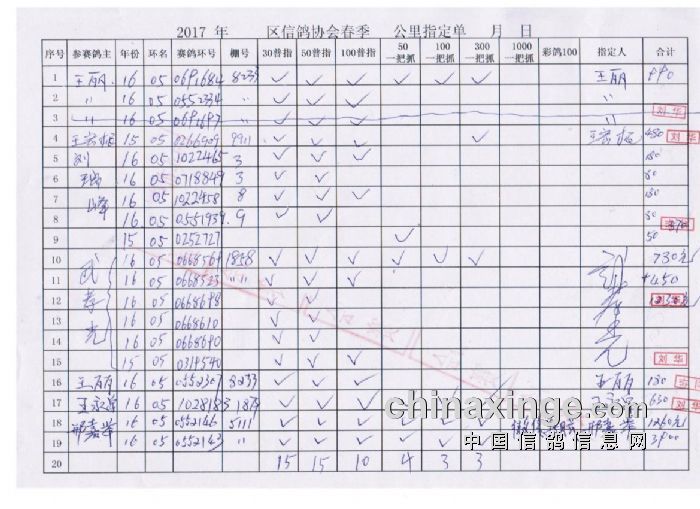 2017 年 区信鸽协会春季 公里指定单 月 日
序号 参赛鸽主 年份 环名 赛鸽环号 棚号 30普指 50普指 100普指 50一把抓 100一把抓 300一把抓 1000一把抓 彩鸽100 指定人 合计
1 王丽 16 05 0691684 8233 ✓ ✓ ✓ ✓ ✓ ✓ 王丽 990
2 〃 16 05 0552334 〃 ✓ ✓ ✓ 〃
3 〃 16 05 0691697 〃 ✓ ✓ ✓ 〃 刘华
4 15 05 9911 ✓ ✓ ✓ ✓ 480 刘华
5 刘 16 05 1022465 3 ✓ ✓ ✓
6 16 05 0718849 3 ✓ ✓
7 峰 16 05 1022458 8 ✓ ✓ ✓
8 16 05 0551939 9 ✓ ✓
9 15 05 0252727 ✓ 50
10 武 16 05 0668569 1858 ✓ ✓ ✓ ✓ ✓ ✓ 730元
11 16 05 0668523 〃 ✓ ✓ ✓ +450
12 孝 16 05 0668698 ✓ ✓ ✓
13 16 05 0668610 ✓ ✓
14 光 16 05 0668690 ✓ ✓
15 15 05 0319540 ✓ ✓ 刘华
16 王丽 16 05 0552307 8233 ✓ ✓ ✓ 王丽 130
17 王永 16 05 1028183 187 ✓ ✓ ✓ ✓ 630
18 邢嘉 16 05 0552146 5111 ✓ ✓ ✓ ✓ ✓ ✓ 邢嘉 1260元
19 16 05 0552143 〃 ✓ ✓ ✓ ✓ ✓ ✓ 3900
20 15 15 10 4 3 3
www.chinaxinge.com
中国信鸽信息网